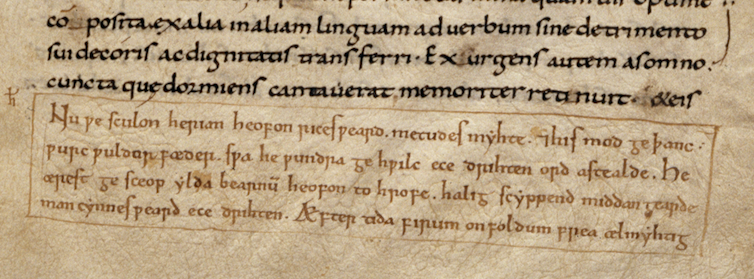 co͞posita. ex alia in aliam linguam ad verbum sine detrimento
sui decoris ac dignitatis transferri. Exurgens autem a somno.
cuncta que dormiens cantaverat memoriter retinuit. & eis
Nu ƿe sculon herian heofon ricesƿeard. metudes myhte. ⁊his mod ge þanc.
ƿurc ƿuldor fæder. sƿa he ƿundra ge hƿilc ece drihten ord astealde. He
ærest ge sceop ylda bearnu͞ heofon to hrofe. halig scyppend middan gearde
man cynnes ƿeard ece drihten. Æfter tida firum on foldum frea ælmyhtig